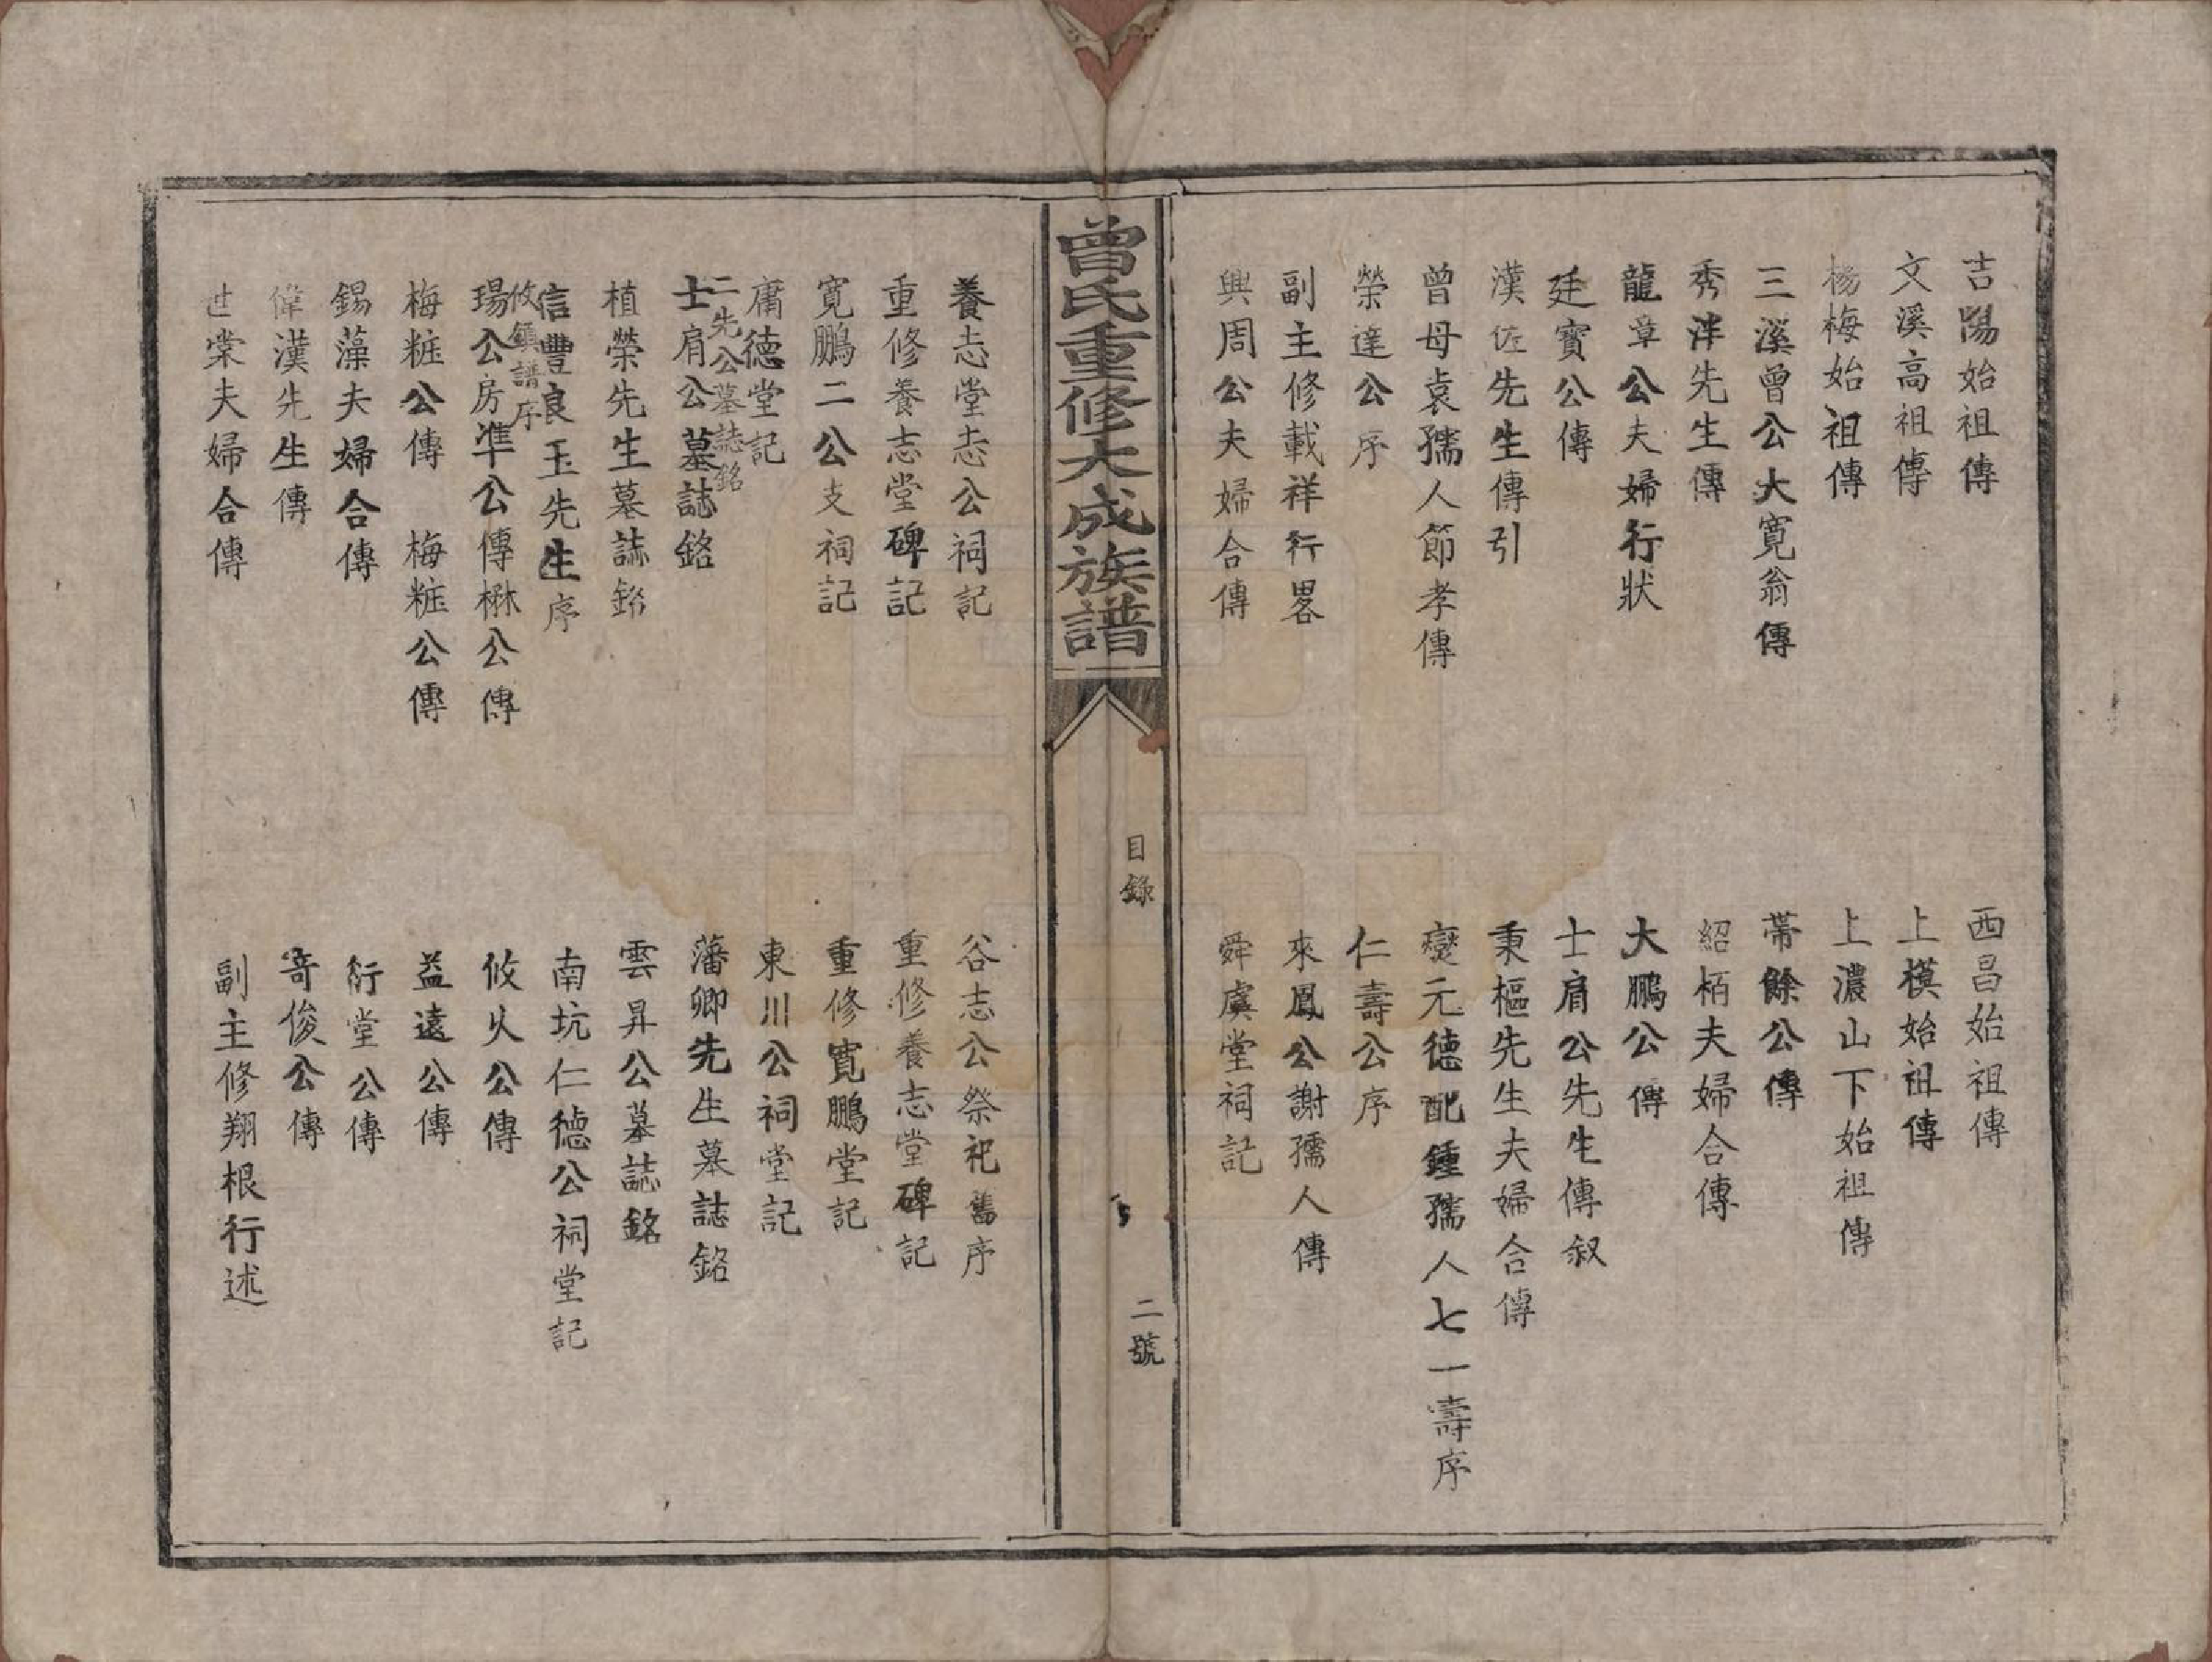 吉陽始祖傳
西昌始祖傳
文溪高祖傳
上模始祖傳
楊梅始祖傳
上濃山下始祖傳
三溪曾公大寬翁傳
帶餘公傳
秀泮先生傳
紹栢夫婦合傳
龍章公夫婦行狀
大鵬公傳
廷寶公傳
士肩公先生傳叙
漢佐先生傳引
秉樞先生夫婦合傳
曾母袁孺人節孝傳
奱元德配鍾孺人七一壽序
榮達公序
仁壽公序
副主修載祥行畧
來鳳公謝孺人傳
興周公夫婦合傳
舜虞堂祠記
曾氏重修大成族譜
目錄
二號
養志堂志公祠記
谷志公祭祀舊序
重修養志堂碑記
重修養志堂碑記
寬鵬二公支祠記
重修寬鵬堂記
庸德堂記
東川公祠堂記
二先公墓誌銘
士肩公墓誌銘
藩卿先生墓誌銘
植榮先生墓誌銘
雲昇公墓誌銘
信豐良玉先生序
南坑仁德公祠堂記
攸鎮譜序
瑒公房準公傳楙公傳
攸火公傳
梅粧公傳 梅粧公傳
益遠公傳
錫藻夫婦合傳
衍堂公傳
偉漢先生傳
奇俊公傳
世棠夫婦合傳
副主修翔根行述